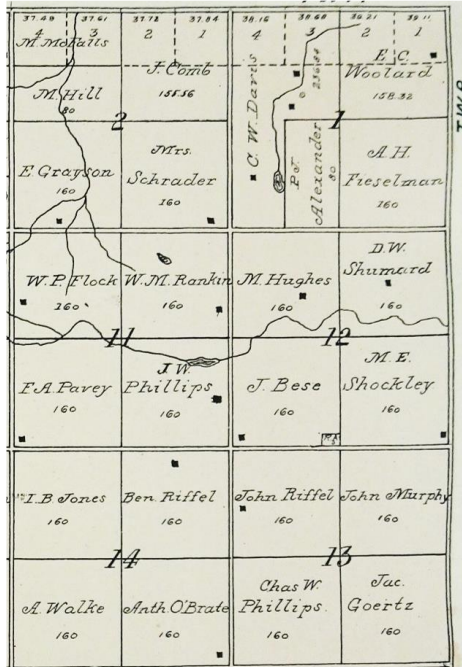 37.49 37.61 37.72 37.84 38.16 38.68 39.21
4 3 2 1 4 3 2 1
M. McFalls
J. Comb
155.56
M. Hill
80
2
C. W. Davis
236.84
E C
Woolard
158.32
1
E Grayson
160
Mrs.
Schrader
160
P. J.
Alexander
80
A. H.
Fieselman
160
W. P. Flock
160
W. M. Rankin
160
M. Hughes
160
D. W.
Shumard
160
11
12
F A. Pavey
160
J. W.
Phillips
160
J. Bese
160
M. E.
Shockley
160
I. B Jones
160
Ben. Riffel
160
John Riffel
160
John Murphy
160
14
13
A. Walke
160
Anth O'Brate
160
Chas W.
Phillips.
160
Jac.
Goertz
160